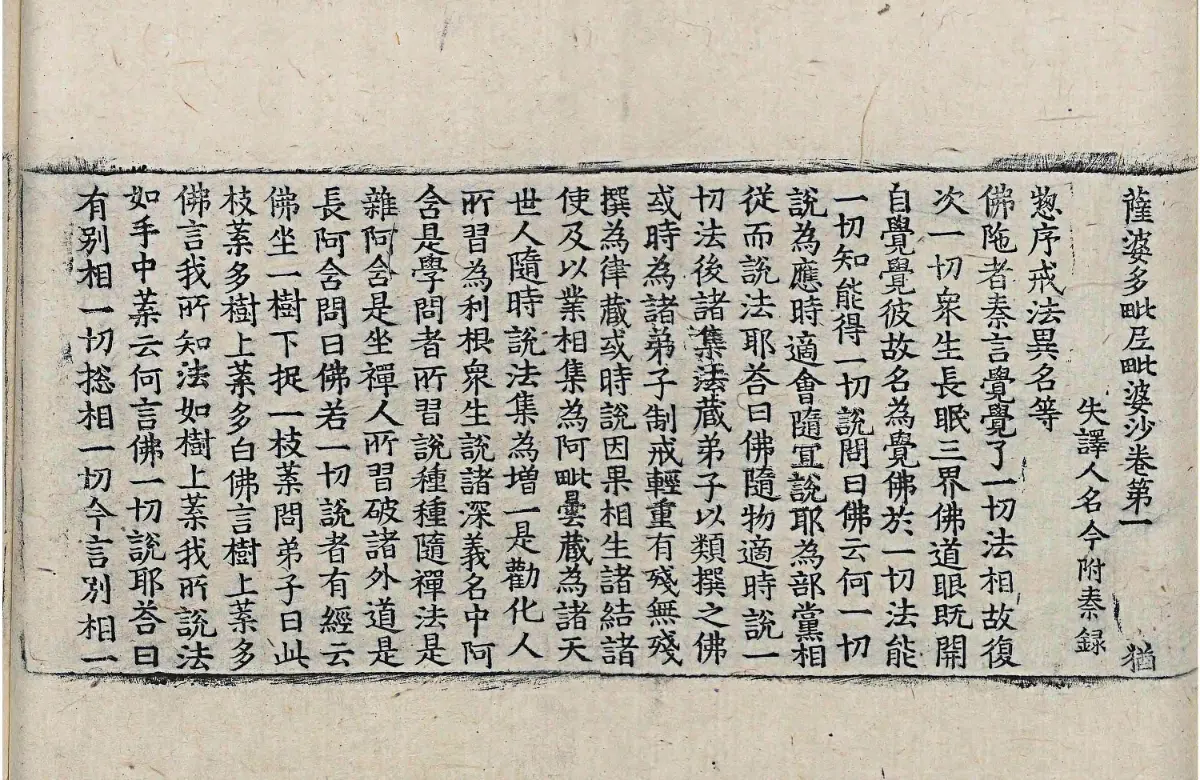 薩婆多毗尼毗婆沙卷第一 猶
失譯人名今附秦録
惣序戒法異名等
佛陁者秦言覺覺了一切法相故復
次一切衆生長眠三界佛道眼既開
自覺覺彼故名為覺佛於一切法能
一切知能得一切說問曰佛云何一切
說為應時適會隨冝說耶為部黨相
從而說法耶荅曰佛隨物適時說一
切法後諸集法藏弟子以類撰之佛
或時為諸弟子制戒輕重有殘無殘
撰為律藏或時說因果相生諸結諸
使及以業相集為阿毗曇藏為諸天
世人隨時說法集為增一是勸化人
所習為利根衆生說諸深義名中阿
含是學問者所習說種種隨禪法是
雜阿含是坐禪人所習破諸外道是
長阿含問曰佛若一切說者有經云
佛坐一樹下捉一枝葉問弟子曰此
枝葉多樹上葉多白佛言樹上葉多
佛言我所知法如樹上葉我所說法
如手中葉云何言佛一切說耶荅曰
有別相一切揔相一切今言別相一